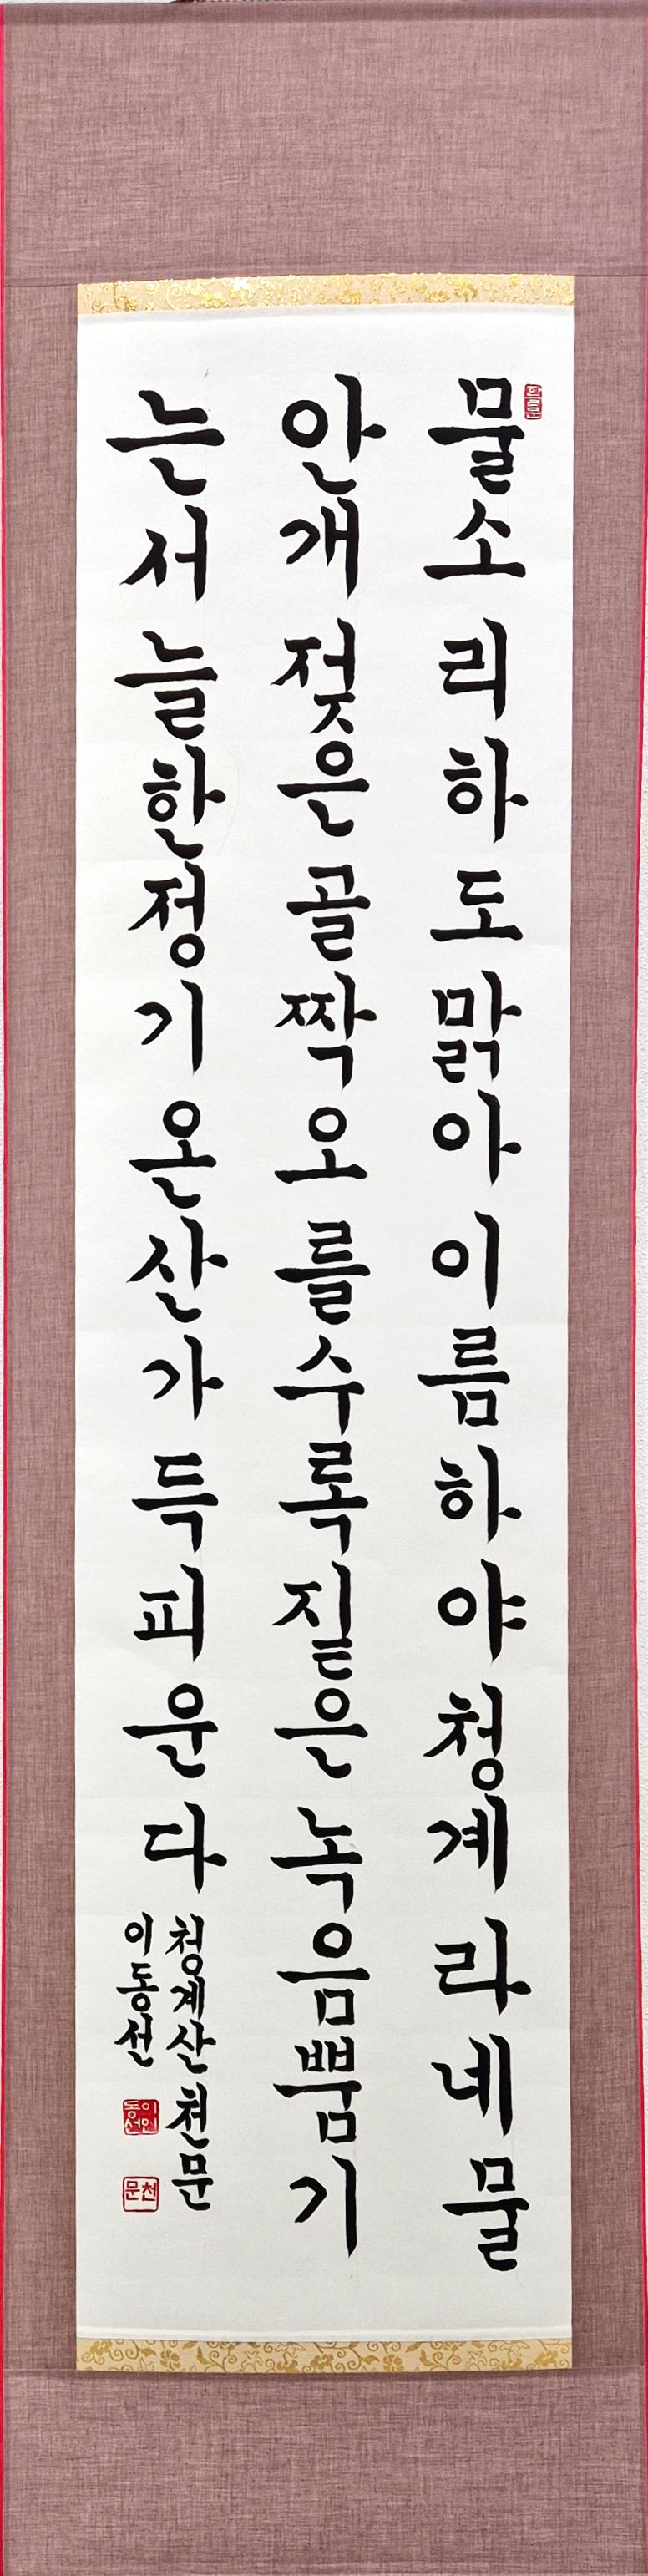 물소리하도맑아이름하야청계라네물
안개젖은골짝오를수록짙은녹음뿜기
는서늘한정기온산가득피운다
청계산 천문
이동선
이인동선
천문